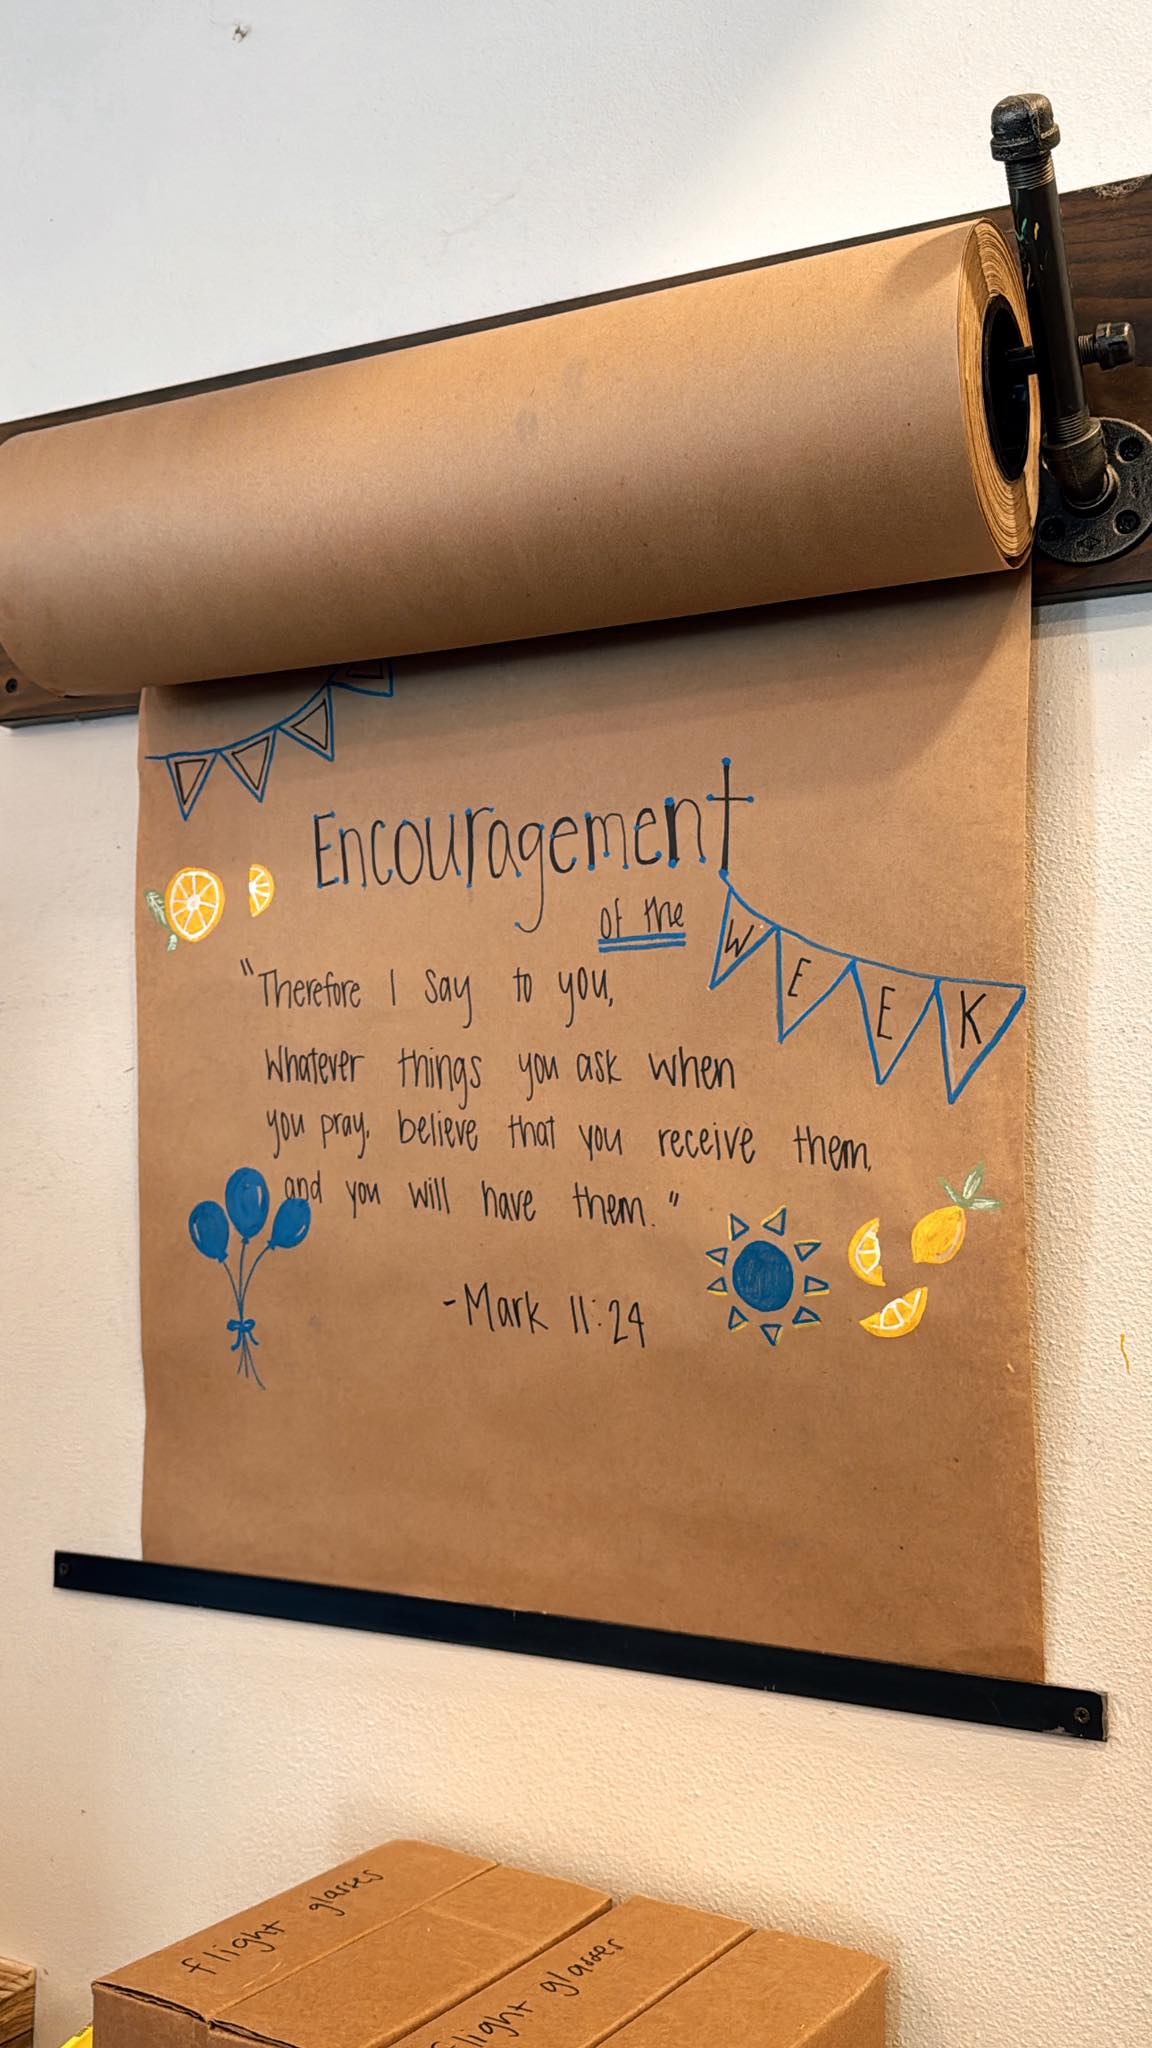 Encouragement
of the
WEEK
"Therefore I say to you,
Whatever things you ask when
you pray, believe that you receive them,
and you will have them."
-Mark 11:24
flight glasses
flight glasses